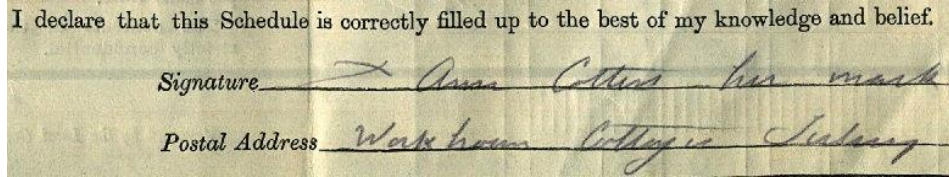 I declare that this Schedule is correctly filled up to the best of my knowledge and belief.
Signature X Ann Cotters her mark
Postal Address Workhouse Cottages